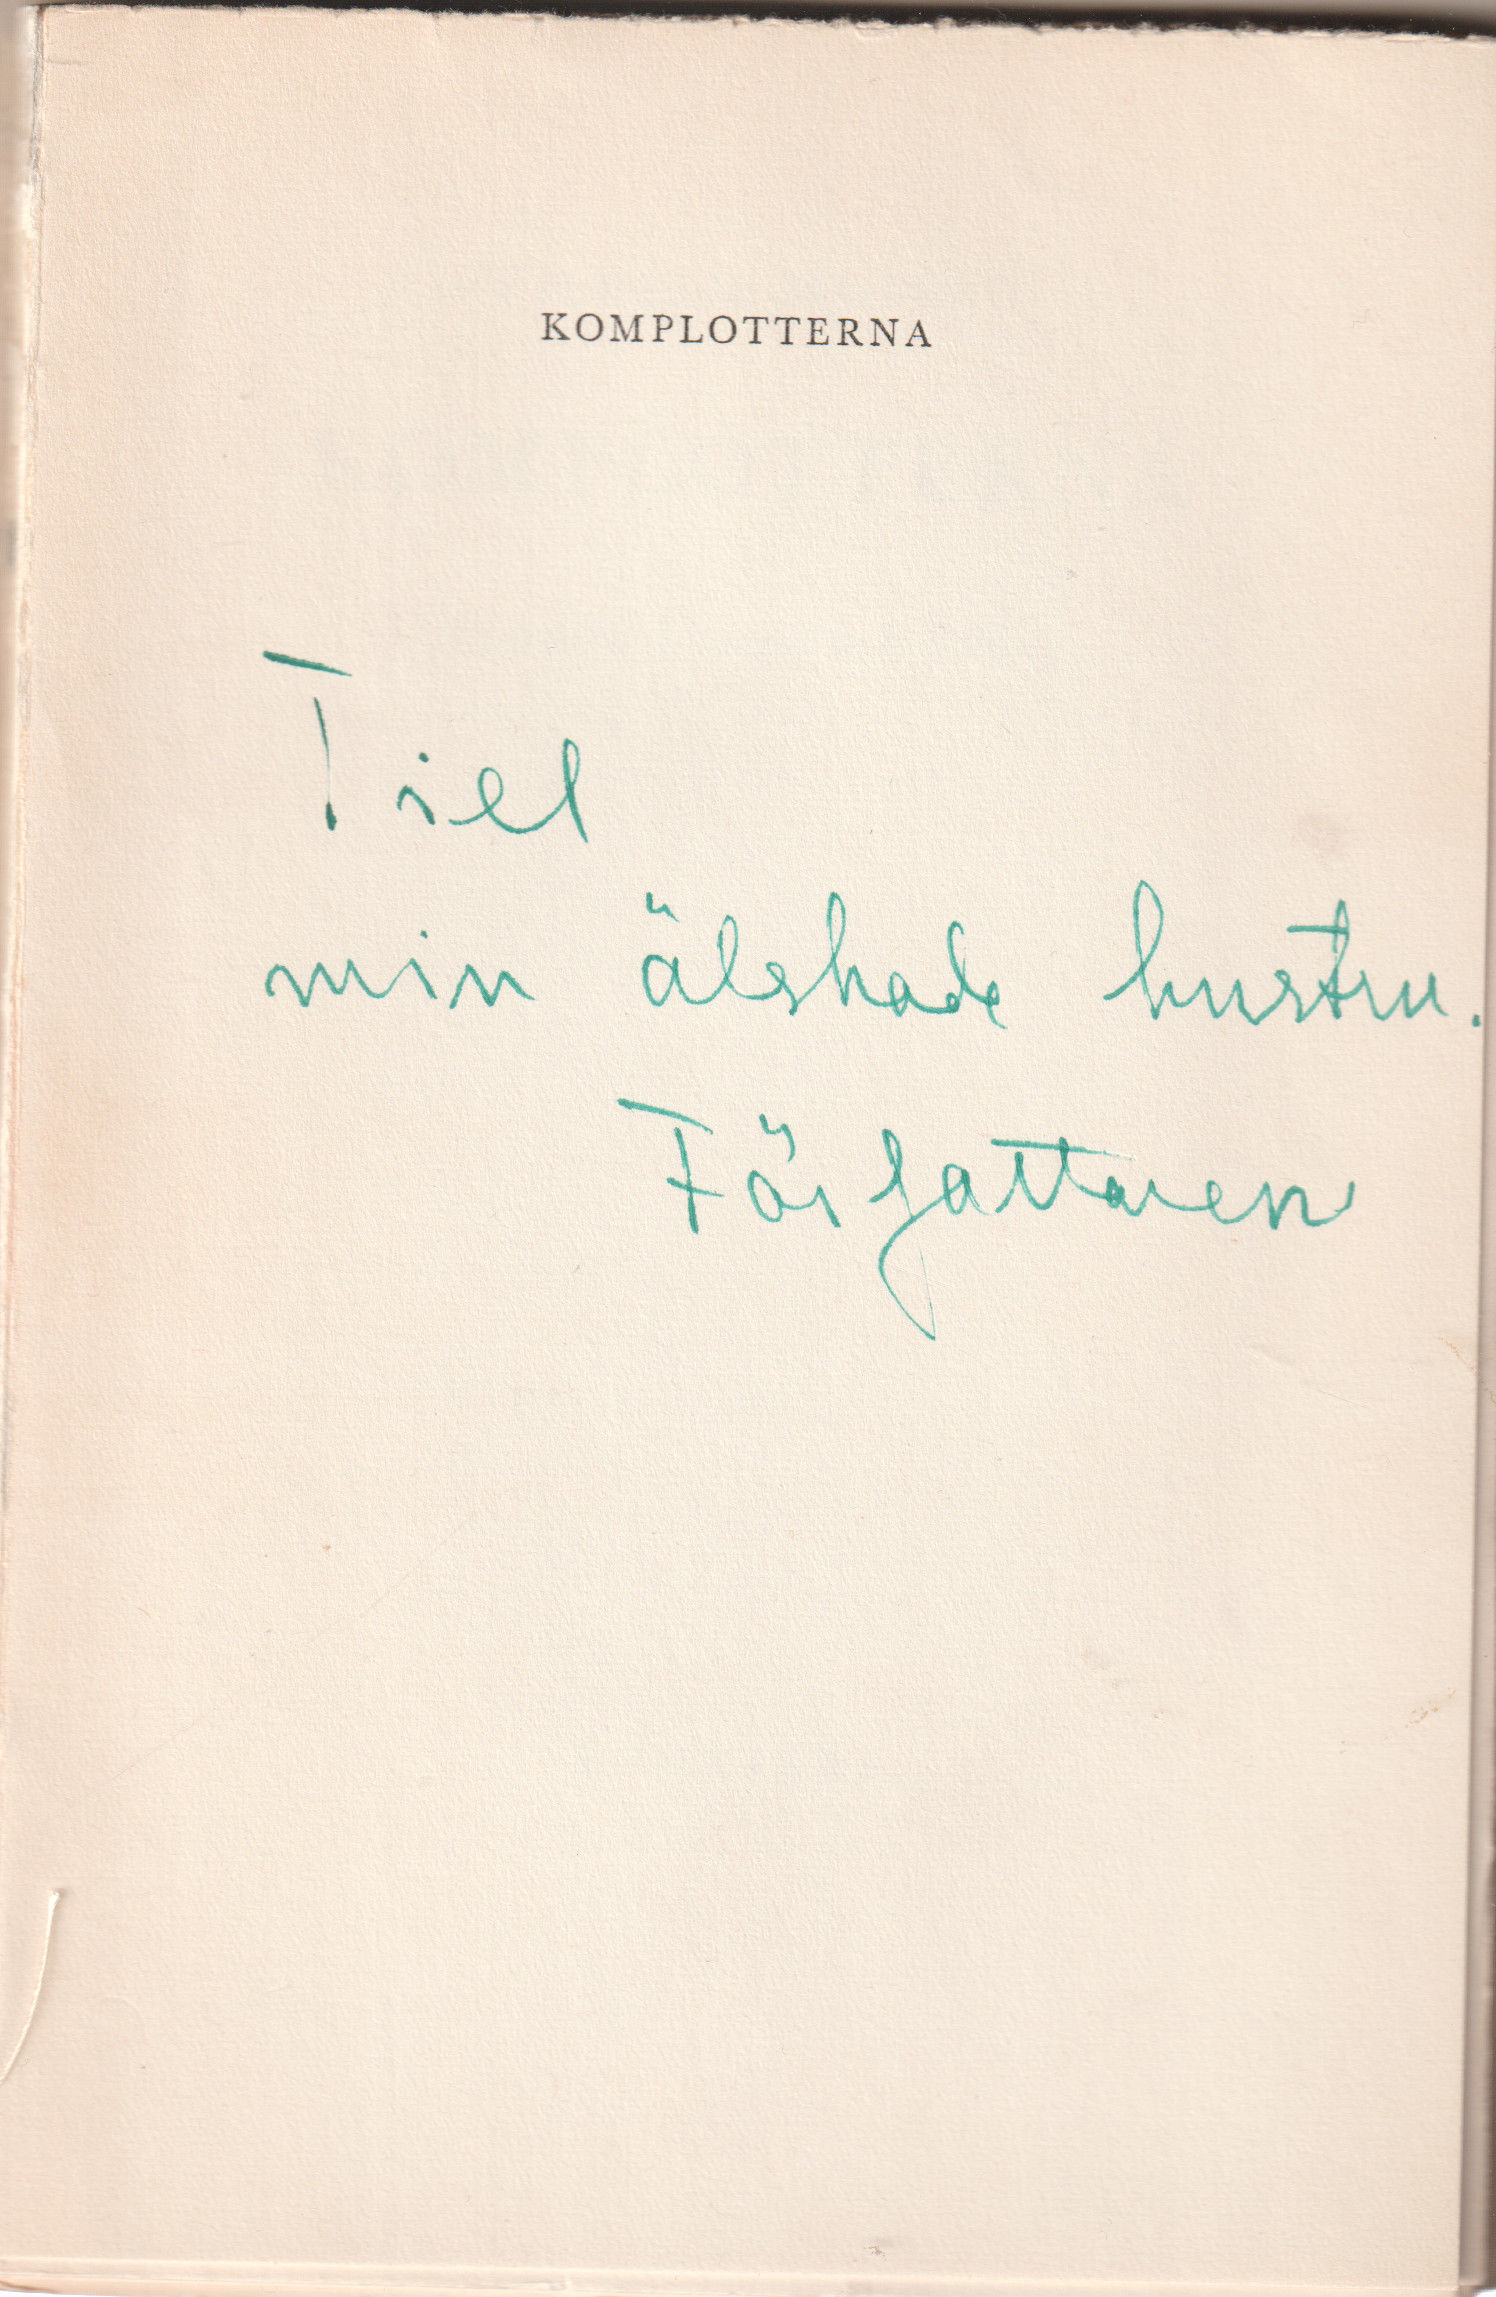 KOMPLOTTERNA
Till
min älskade hustru.
Författaren